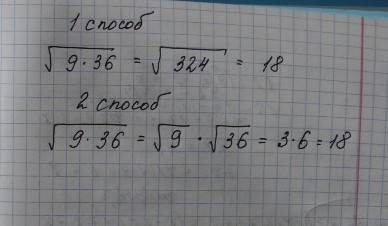 1 способ
√9·36 = √324 = 18
2 способ
√9·36 = √9 · √36 = 3·6 = 18